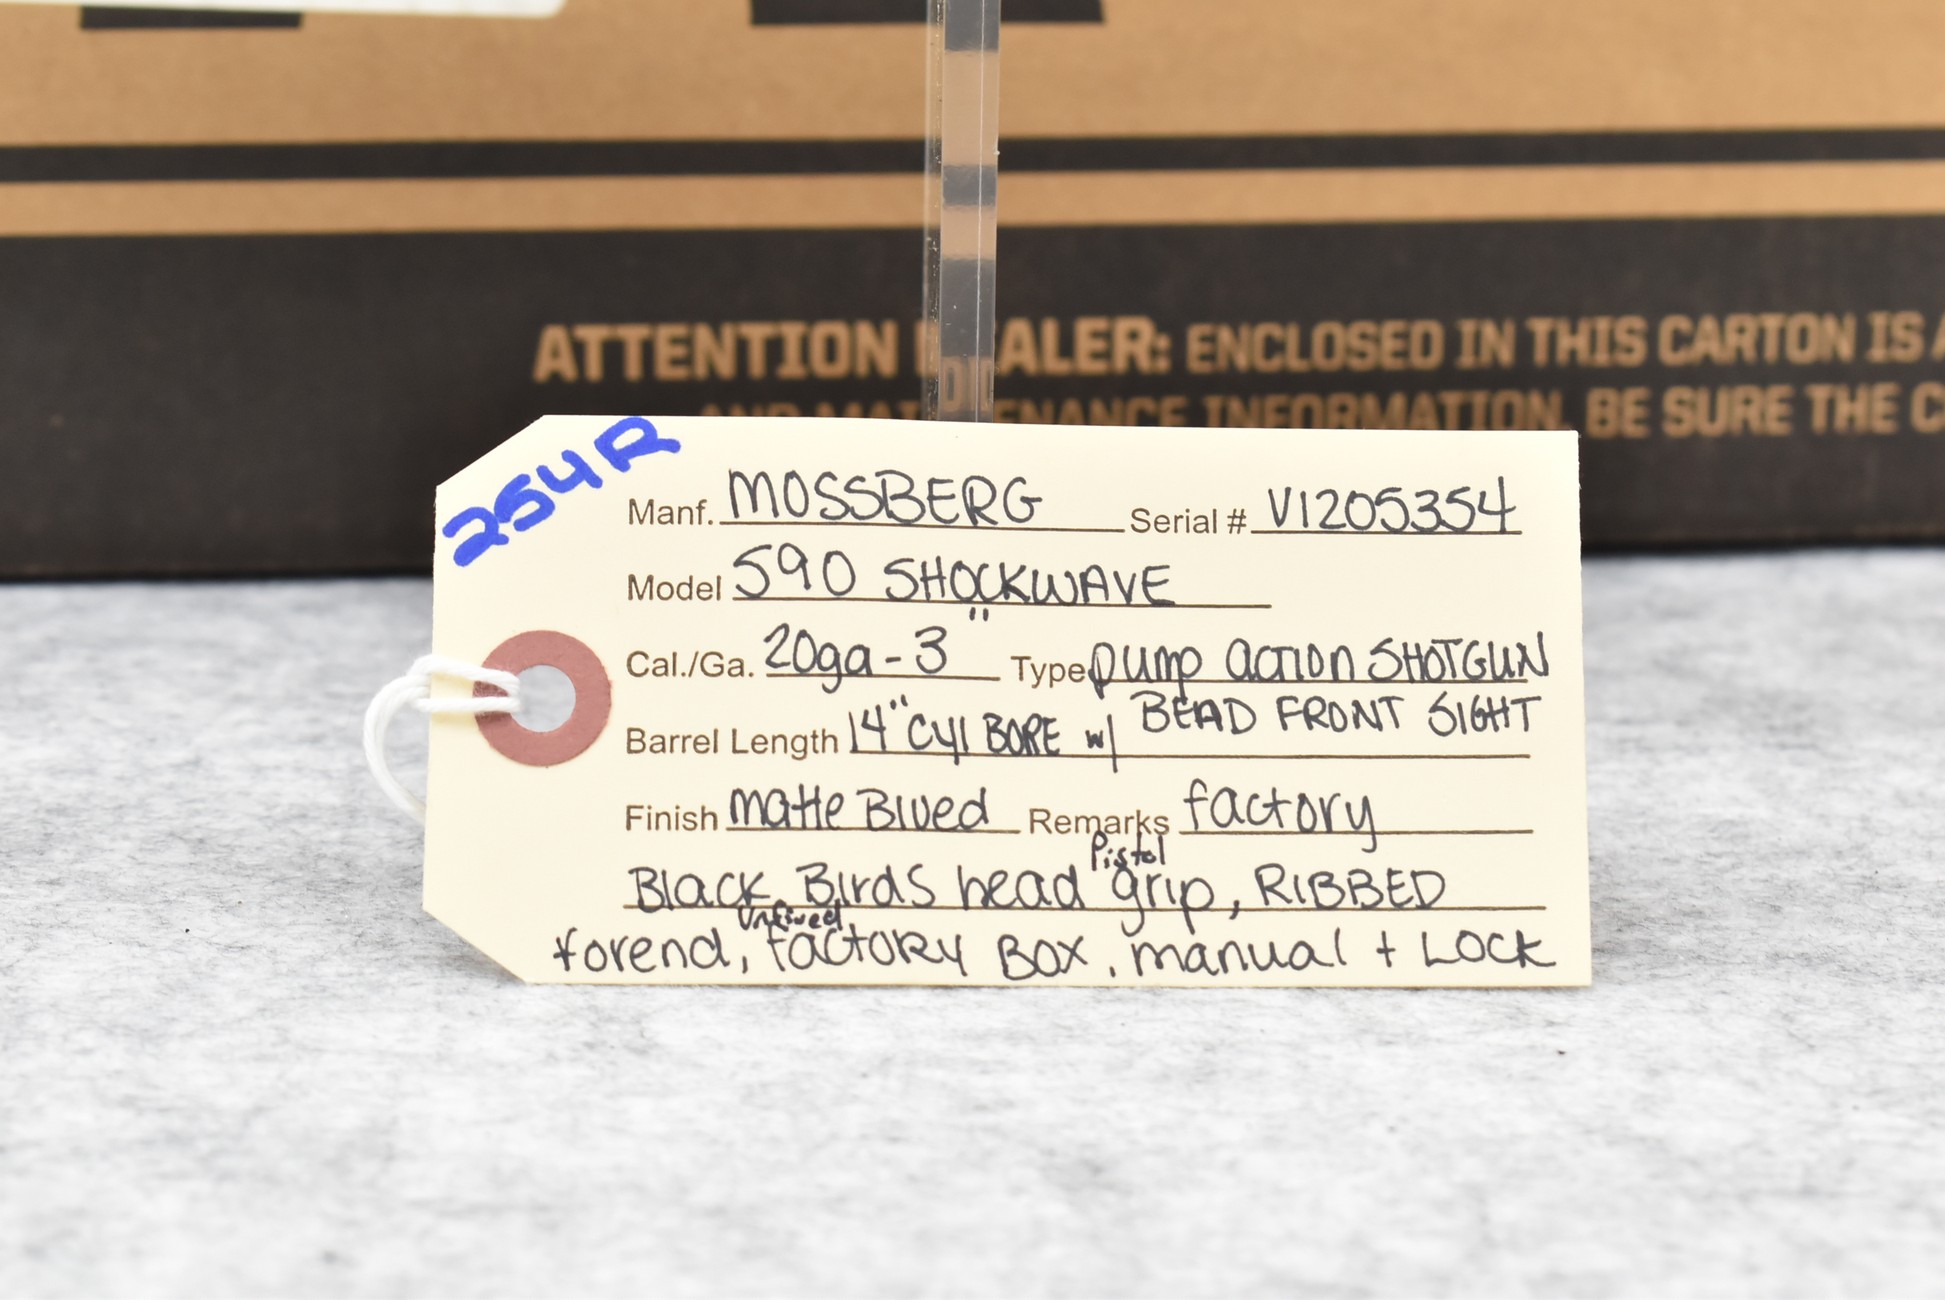 ATTENTION DEALER: ENCLOSED IN THIS CARTON IS A
AND MAINTENANCE INFORMATION. BE SURE THE C
254R
Manf. MOSSBERG Serial # V1205354
Model 590 SHOCKWAVE
Cal./Ga. 20ga-3" Type pump action SHOTGUN
Barrel Length 14" Cyl BORE w/ BEAD FRONT SIGHT
Finish matte Blued Remarks factory
Black Birds head Pistol grip, RIBBED
forend, Unfired factory BOX, manual + LOCK